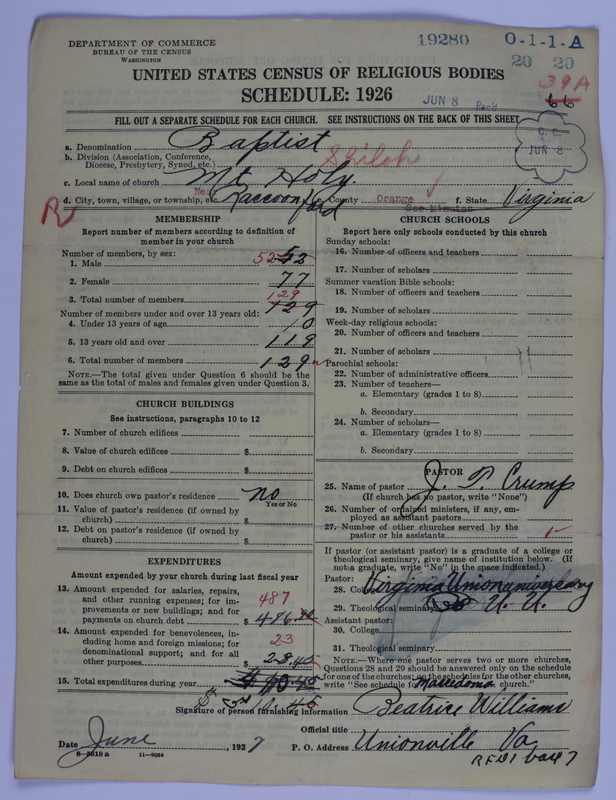 DEPARTMENT OF COMMERCE
BUREAU OF THE CENSUS
WASHINGTON
19280
O-1-1-A
20 20
39A
66
UNITED STATES CENSUS OF RELIGIOUS BODIES
SCHEDULE: 1926
JUN 8 Rec'd
FILL OUT A SEPARATE SCHEDULE FOR EACH CHURCH. SEE INSTRUCTIONS ON THE BACK OF THIS SHEET
C. C.
JUN 8
a. Denomination Baptist
b. Division (Association, Conference, Diocese, Presbytery, Synod, etc.) Shiloh
c. Local name of church Mt Holy.
d. City, town, village, or township, etc. Near Raccoon ford e. County Orange f. State Virginia
See Minutes
R
MEMBERSHIP
Report number of members according to definition of member in your church
Number of members, by sex:
1. Male 52 52
2. Female 77
3. Total number of members 129 129
Number of members under and over 13 years old:
4. Under 13 years of age 10
5. 13 years old and over 119
6. Total number of members 129
NOTE.—The total given under Question 6 should be the same as the total of males and females given under Question 3.
CHURCH BUILDINGS
See instructions, paragraphs 10 to 12
7. Number of church edifices
8. Value of church edifices $
9. Debt on church edifices $
10. Does church own pastor's residence no
Yes or No
11. Value of pastor's residence (if owned by church) $
12. Debt on pastor's residence (if owned by church) $
EXPENDITURES
Amount expended by your church during last fiscal year
13. Amount expended for salaries, repairs, and other running expenses; for improvements or new buildings; and for payments on church debt $ 486.80
487
14. Amount expended for benevolences, including home and foreign missions; for denominational support; and for all other purposes $ 23.45
23
15. Total expenditures during year
CHURCH SCHOOLS
Report here only schools conducted by this church
Sunday schools:
16. Number of officers and teachers
17. Number of scholars
Summer vacation Bible schools:
18. Number of officers and teachers
19. Number of scholars
Week-day religious schools:
20. Number of officers and teachers
21. Number of scholars
Parochial schools:
22. Number of administrative officers
23. Number of teachers—
a. Elementary (grades 1 to 8)
b. Secondary
24. Number of scholars—
a. Elementary (grades 1 to 8)
b. Secondary
PASTOR
25. Name of pastor J. T. Crump
(If church has no pastor, write "None")
26. Number of ordained ministers, if any, employed as assistant pastors
27. Number of other churches served by the pastor or his assistants 1
If pastor (or assistant pastor) is a graduate of a college or theological seminary, give name of institution below. (If not a graduate, write "No" in the space indicated.)
Pastor:
28. College Virginia Union university
29. Theological seminary V. U. U.
Assistant pastor:
30. College
31. Theological seminary
NOTE.—Where one pastor serves two or more churches, Questions 28 and 29 should be answered only on the schedule for one of the churches; on the schedules for the other churches, write "See schedule for Macedonia church."
Signature of person furnishing information Beatrice Williams
Official title
Date June, 1927
P. O. Address Unionville Va
RFD1 box 7
8—5518a 11—9084